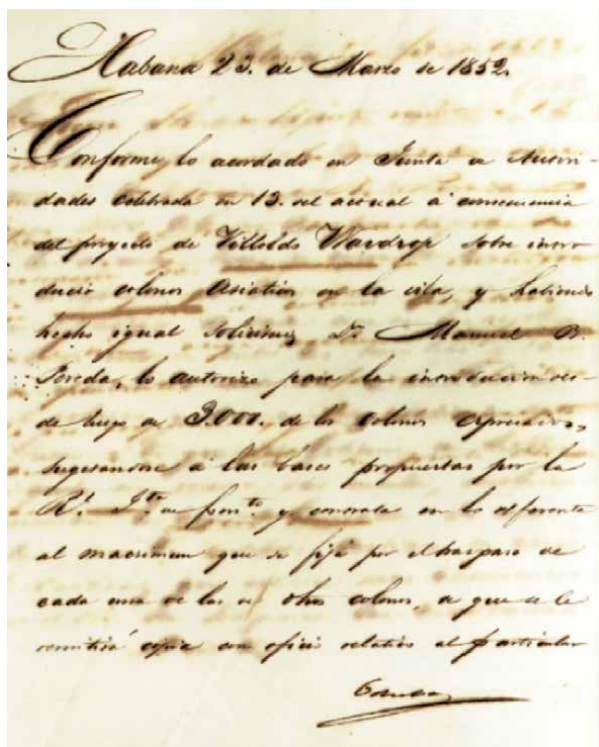 Habana 23. de Marzo de 1852.
Conforme lo acordado en Junta de Autori-
dades celebrada en 13. del actual á consecuencia
del proyecto de Villoldo Wardrop sobre intro
ducir colonos Asiaticos en la isla, y habiendo
hecho igual solicitud Dn. Manuel B.
Pereda, lo autorizo para la introduccion des-
de luego de 3.000. de los colonos espresados,
sugetandose á las bases propuestas por la
Rl. Jta. de Fomto. y contrata en lo referente
al macsimum que se fija por el traspaso de
cada uno de los colonos, de que se le
remitirá copia con oficio relativo al particular